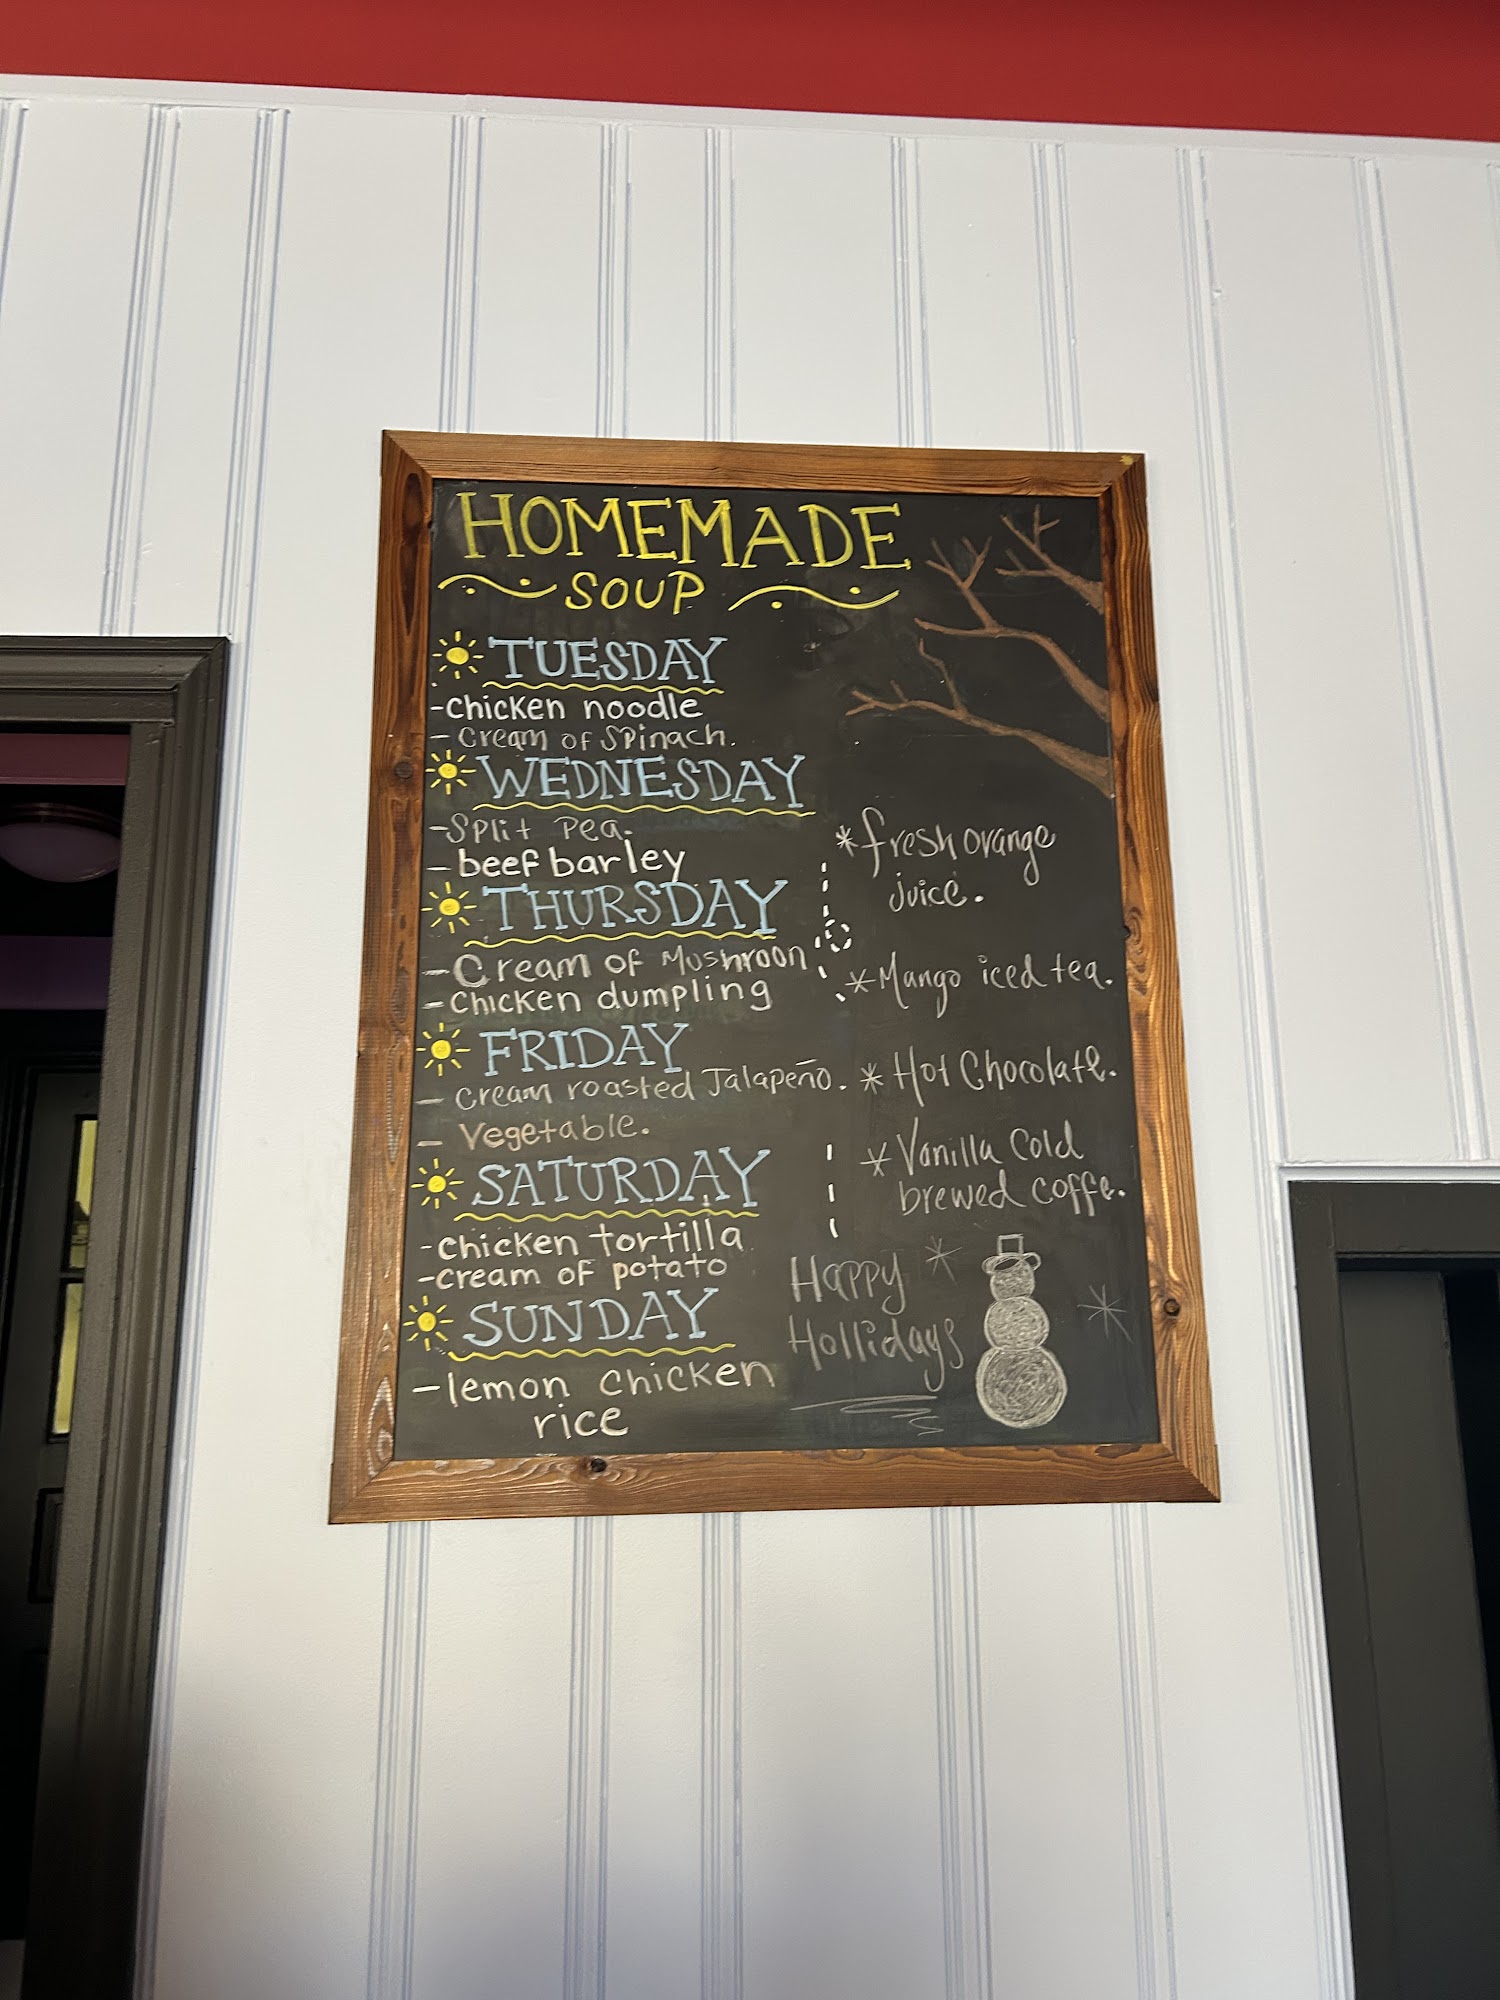 HOMEMADE
SOUP
TUESDAY
-chicken noodle
- Cream of Spinach.
WEDNESDAY
-Split Pea.
- beef barley
THURSDAY
- Cream of Mushroon
- Chicken dumpling
FRIDAY
- cream roasted Jalapeño.
- Vegetable.
SATURDAY
-chicken tortilla
-cream of potato
SUNDAY
-lemon chicken
rice
*fresh orange
juice.
*Mango iced tea.
* Hot Chocolate.
*Vanilla Cold
brewed coffe.
Happy
Hollidays